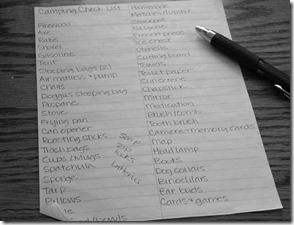 Camping Check List
Firewood
Axe
Rake
Shovel
Gasoline
Tent
Sleeping bags (2)
Air mattress & pump
Chairs
Doggy's sleeping bag
Propane
Stove
Frying pan
Can opener
Roasting sticks
Trash bags
Cups/mugs
Spatchula
Sponge
Tarp
Pillows
Hammock
Matches/lighter
Stockpot
French press
Ice chest
Utensils
Cutting board
Towels
Toilet paper
Sunscreen
Chapstick
Mirror
Medication
Brush
Tooth brush
Camera + memory cards
Map
Headlamp
Books
Dog collars
Binoculars
Ear buds
Cards + games
Soap